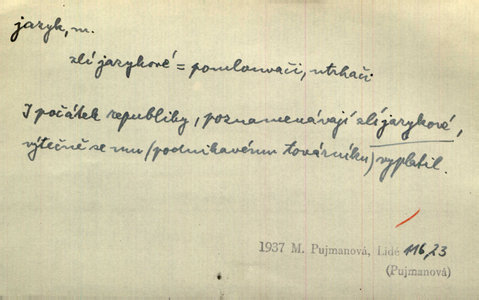 jazyk, m.
zlí jazykové = pomlouvači, utrhači
I počátek republiky, poznamenávají zlí jazykové,
výtečně se mu (podnikavému továrníku) vyplatil.
1937 M. Pujmanová, Lidé 116, 23
(Pujmanová)